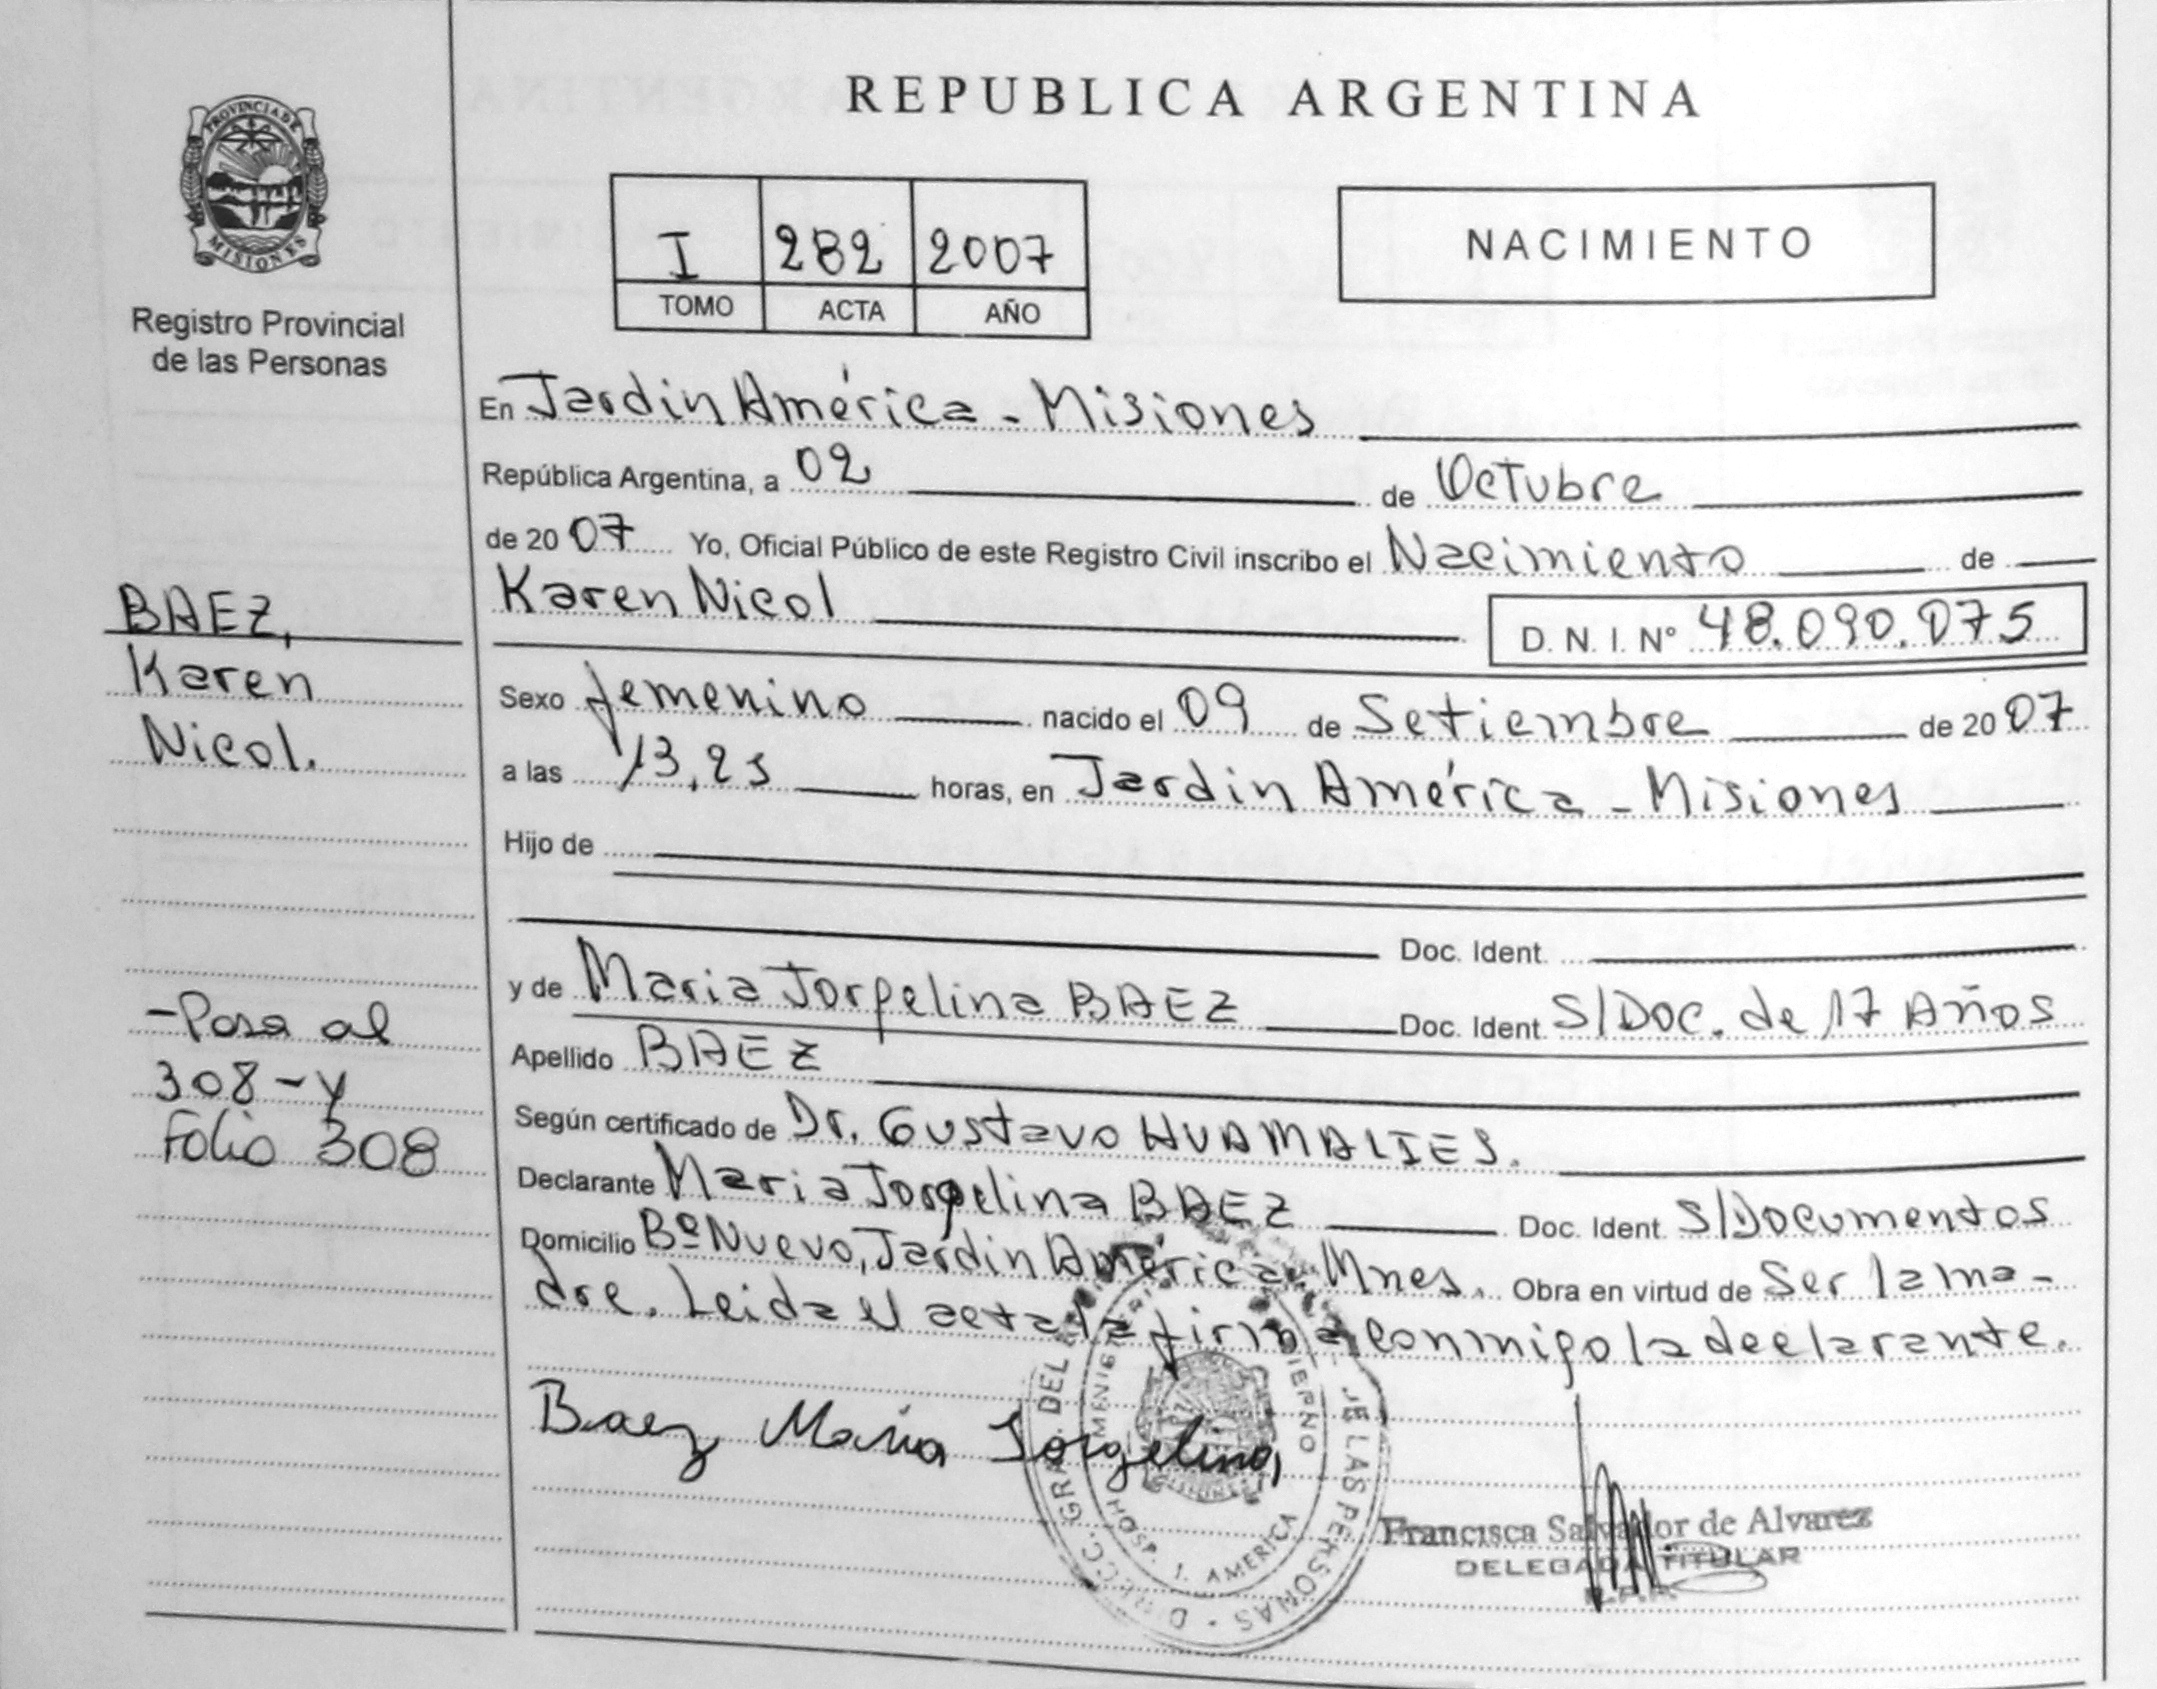 PROVINCIA DE
MISIONES
Registro Provincial
de las Personas
BAEZ,
Karen
Nicol.
-Pasa al
308-y
Folio 308
REPUBLICA ARGENTINA
I 282 2007
TOMO ACTA AÑO
NACIMIENTO
En Jardin América - Misiones
República Argentina, a 02 de Octubre
de 20 07 Yo, Oficial Público de este Registro Civil inscribo el Nacimiento de
Karen Nicol D. N. I. Nº 48.090.075
Sexo femenino nacido el 09 de Setiembre de 20 07
a las 13,25 horas, en Jardin América - Misiones
Hijo de
Doc. Ident.
y de Maria Jorgelina BAEZ Doc. Ident. S/Doc. de 17 Años
Apellido BAEZ
Según certificado de Dr. Gustavo HUAMALIES.
Declarante Maria Jorgelina BAEZ Doc. Ident. S/Documentos
Domicilio Bº Nuevo, Jardin América, Mnes. Obra en virtud de Ser la ma-
dre. Leida el acta la firma conmigo la declarante.
Baez Maria Jorgelina
DE LAS PERSONAS
HOSP. J. AMERICA
Francisca Salvador de Alvarez
DELEGADA TITULAR